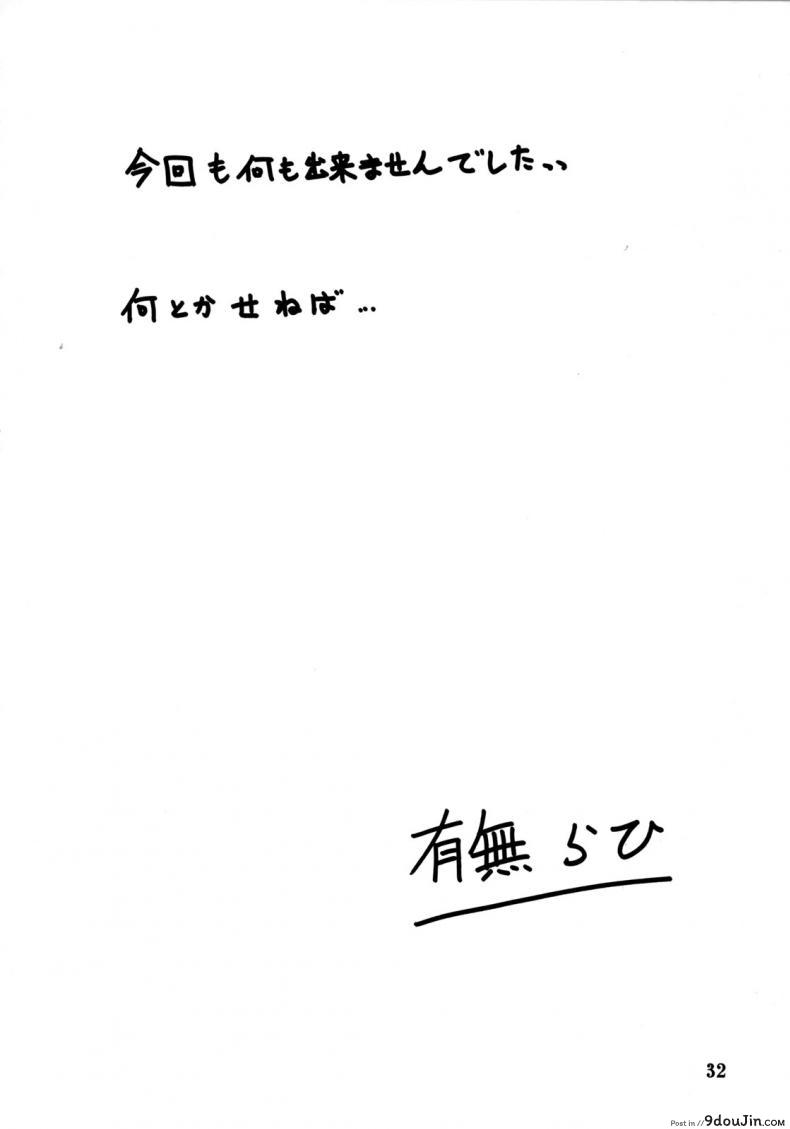 今回も何も出来ませんでしたっっ
何とかせねば…
有無らひ
32
Post in // 9douJin.com